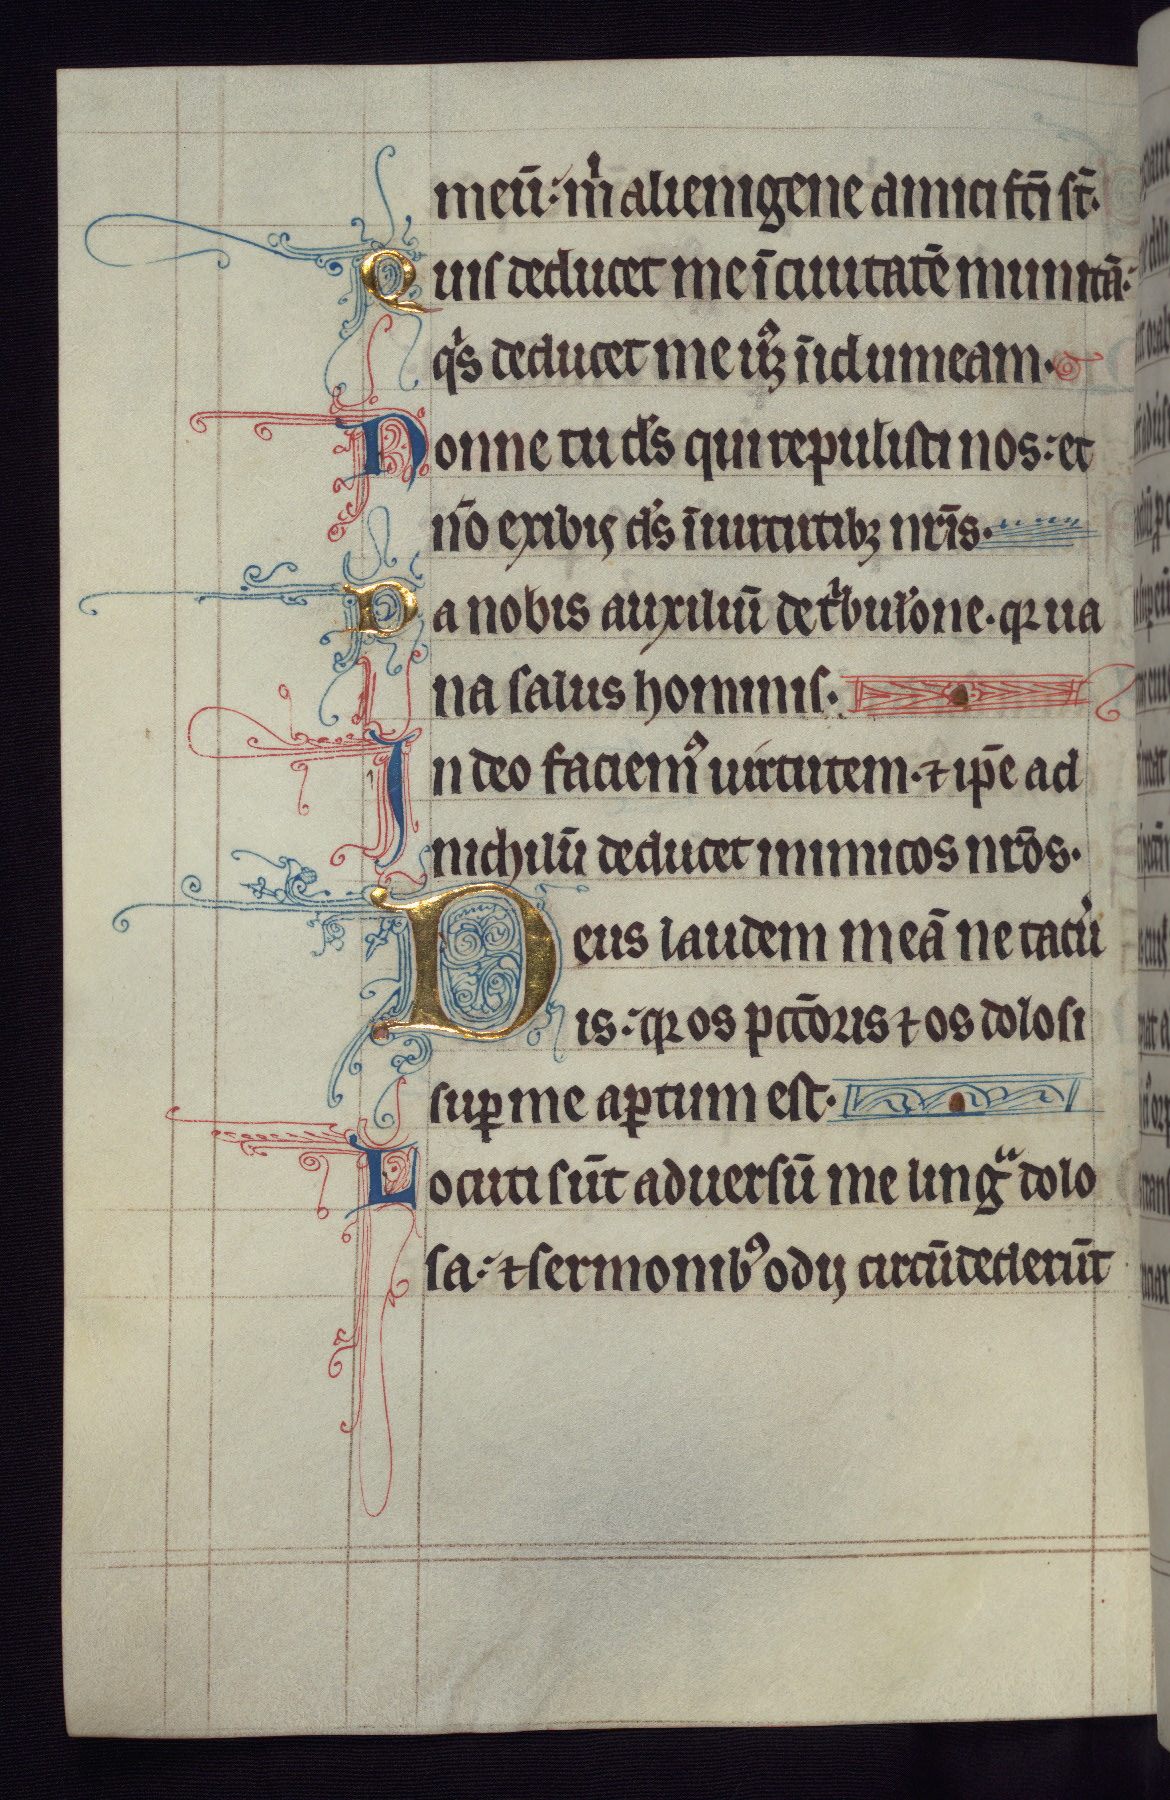 meū: m̄ alienigene amici sc̄i st̄.
Quis deducet me ī ciuitatē munitā:
qͥs deducet me usꝫ ī idumeam.
Nonne tu ds̄ qui repulisti nos: et
nō exibis ds̄ ī uirtutibꝫ nr̄is.
Da nobis auxiliū de tͥbulōne. qꝛ ua
na salus hominis.
In deo faciemꝰ uirtutem. ⁊ ip̄e ad
nichilū deducet inimicos nr̄os.
Deus laudem meā ne tacu
is: qꝛ os pctōris ⁊ os dolosi
suꝑ me aꝑtum est.
Locuti sūt aduersū me lingᵃ dolo
sa: ⁊ sermonibꝰ odij circūdederūt